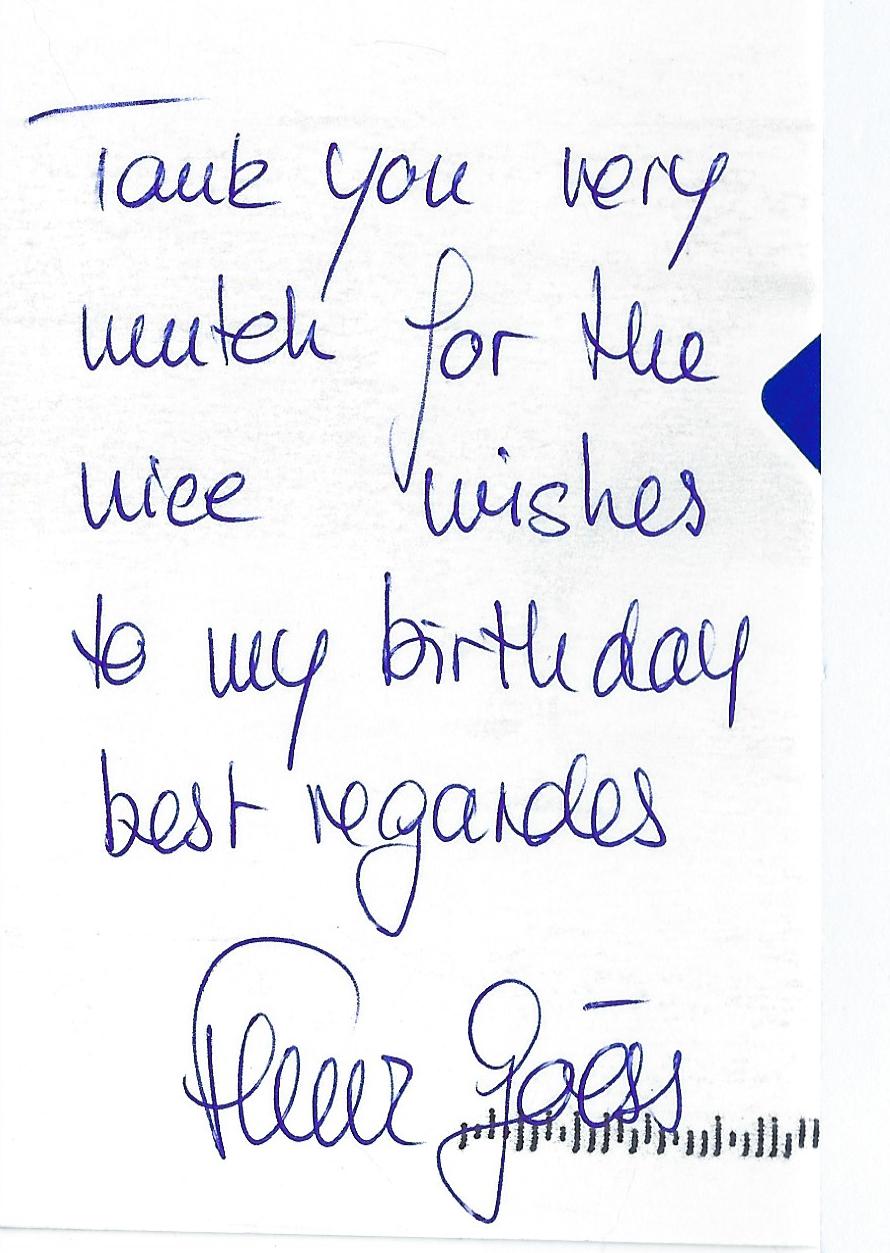 Tank you very
mutch for the
nice wishes
to my birthday
best regardes